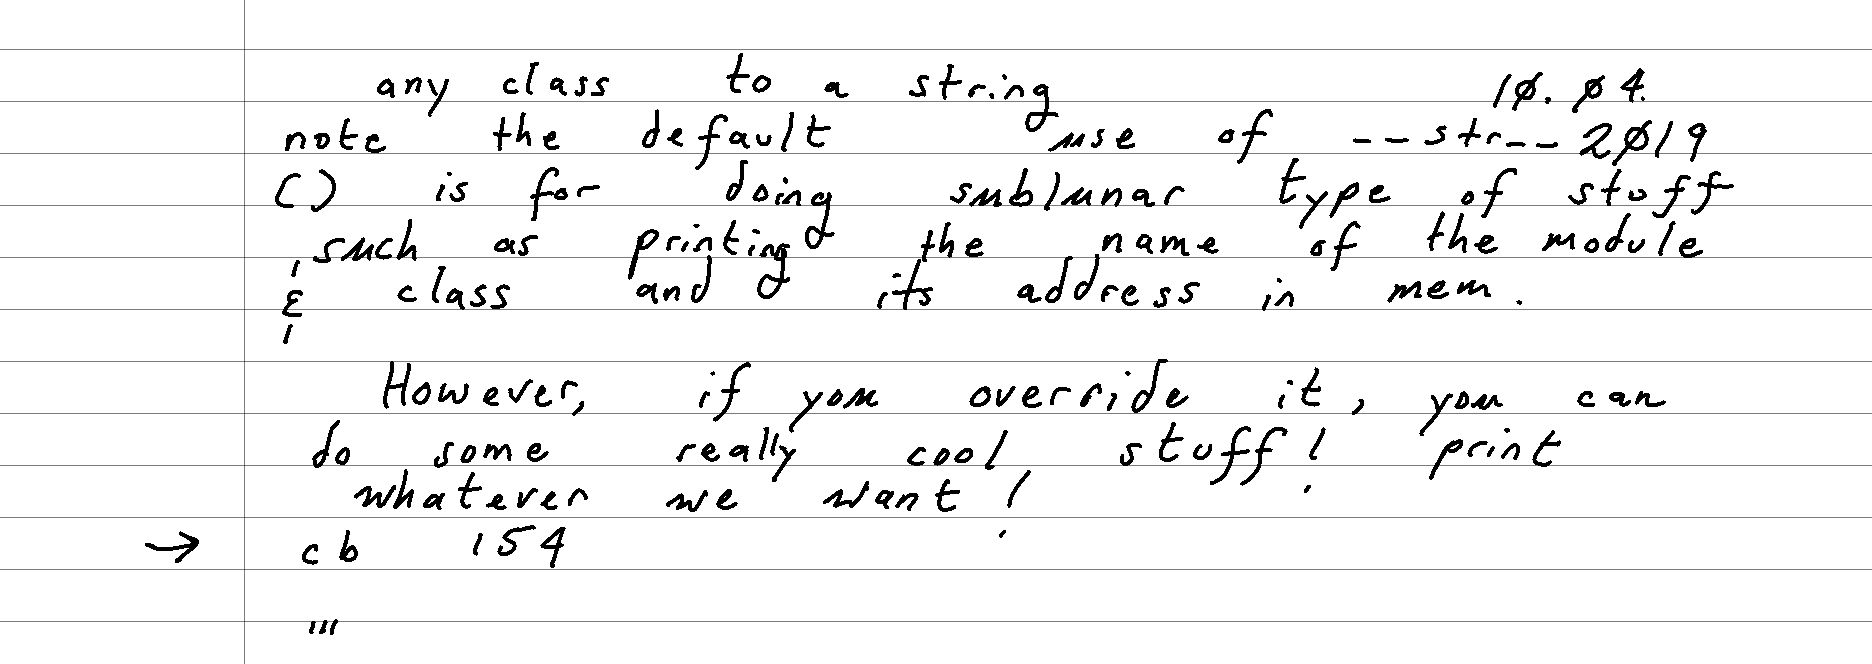 any class to a string 10.04.
note the default use of __str__ 2019
() is for doing sublunar type of stuff
, such as printing the name of the module
& class and its address in mem.
However, if you override it, you can
do some really cool stuff! print
whatever we want!
→ cb 154
'''